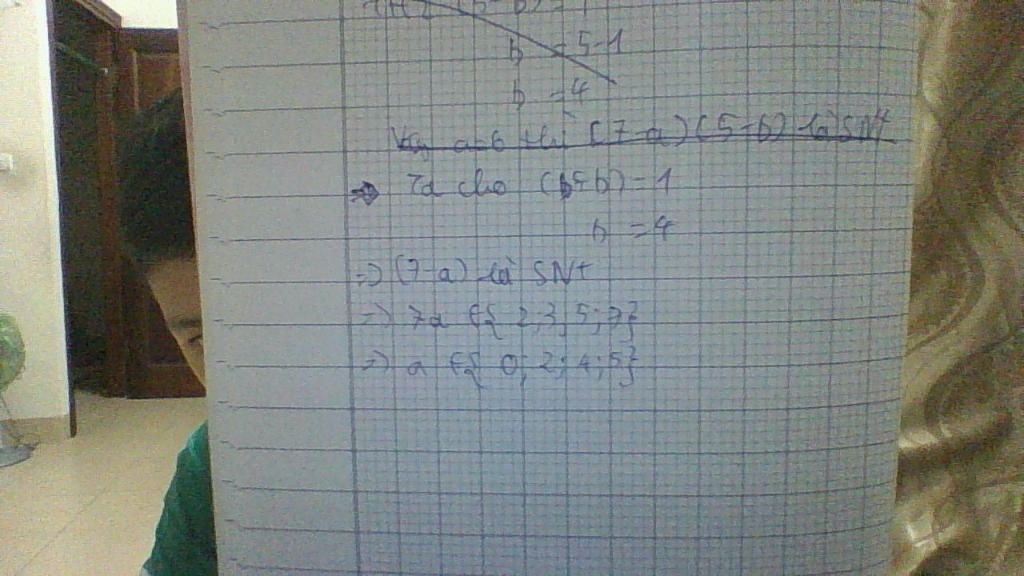 (5-b) = 1
b = 5-1
b = 4
Vậy a=6 thì (7-a)(5-b) là SNT
=> Ta cho (5-b) = 1
b = 4
=> (7-a) là SNT
=> 7a ∈{ 2;3;5;7}
=> a ∈{ 0; 2; 4; 5}